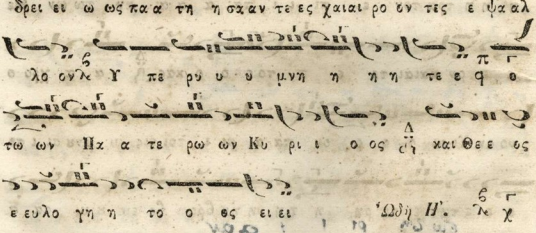 δρει ει ω ως πα α τη η σα αν τε ες χαι αι ρο ον τες ε ψα αλ
λο ον Υ πε ρυ υ υ μνη η η η τε ε ο
τω ων Πα α τε ρω ων Κυ ρι ι ο ος και Θε ε ος
ε ευ λο γη η το ο ος ει ει Ὠδὴ Η΄.